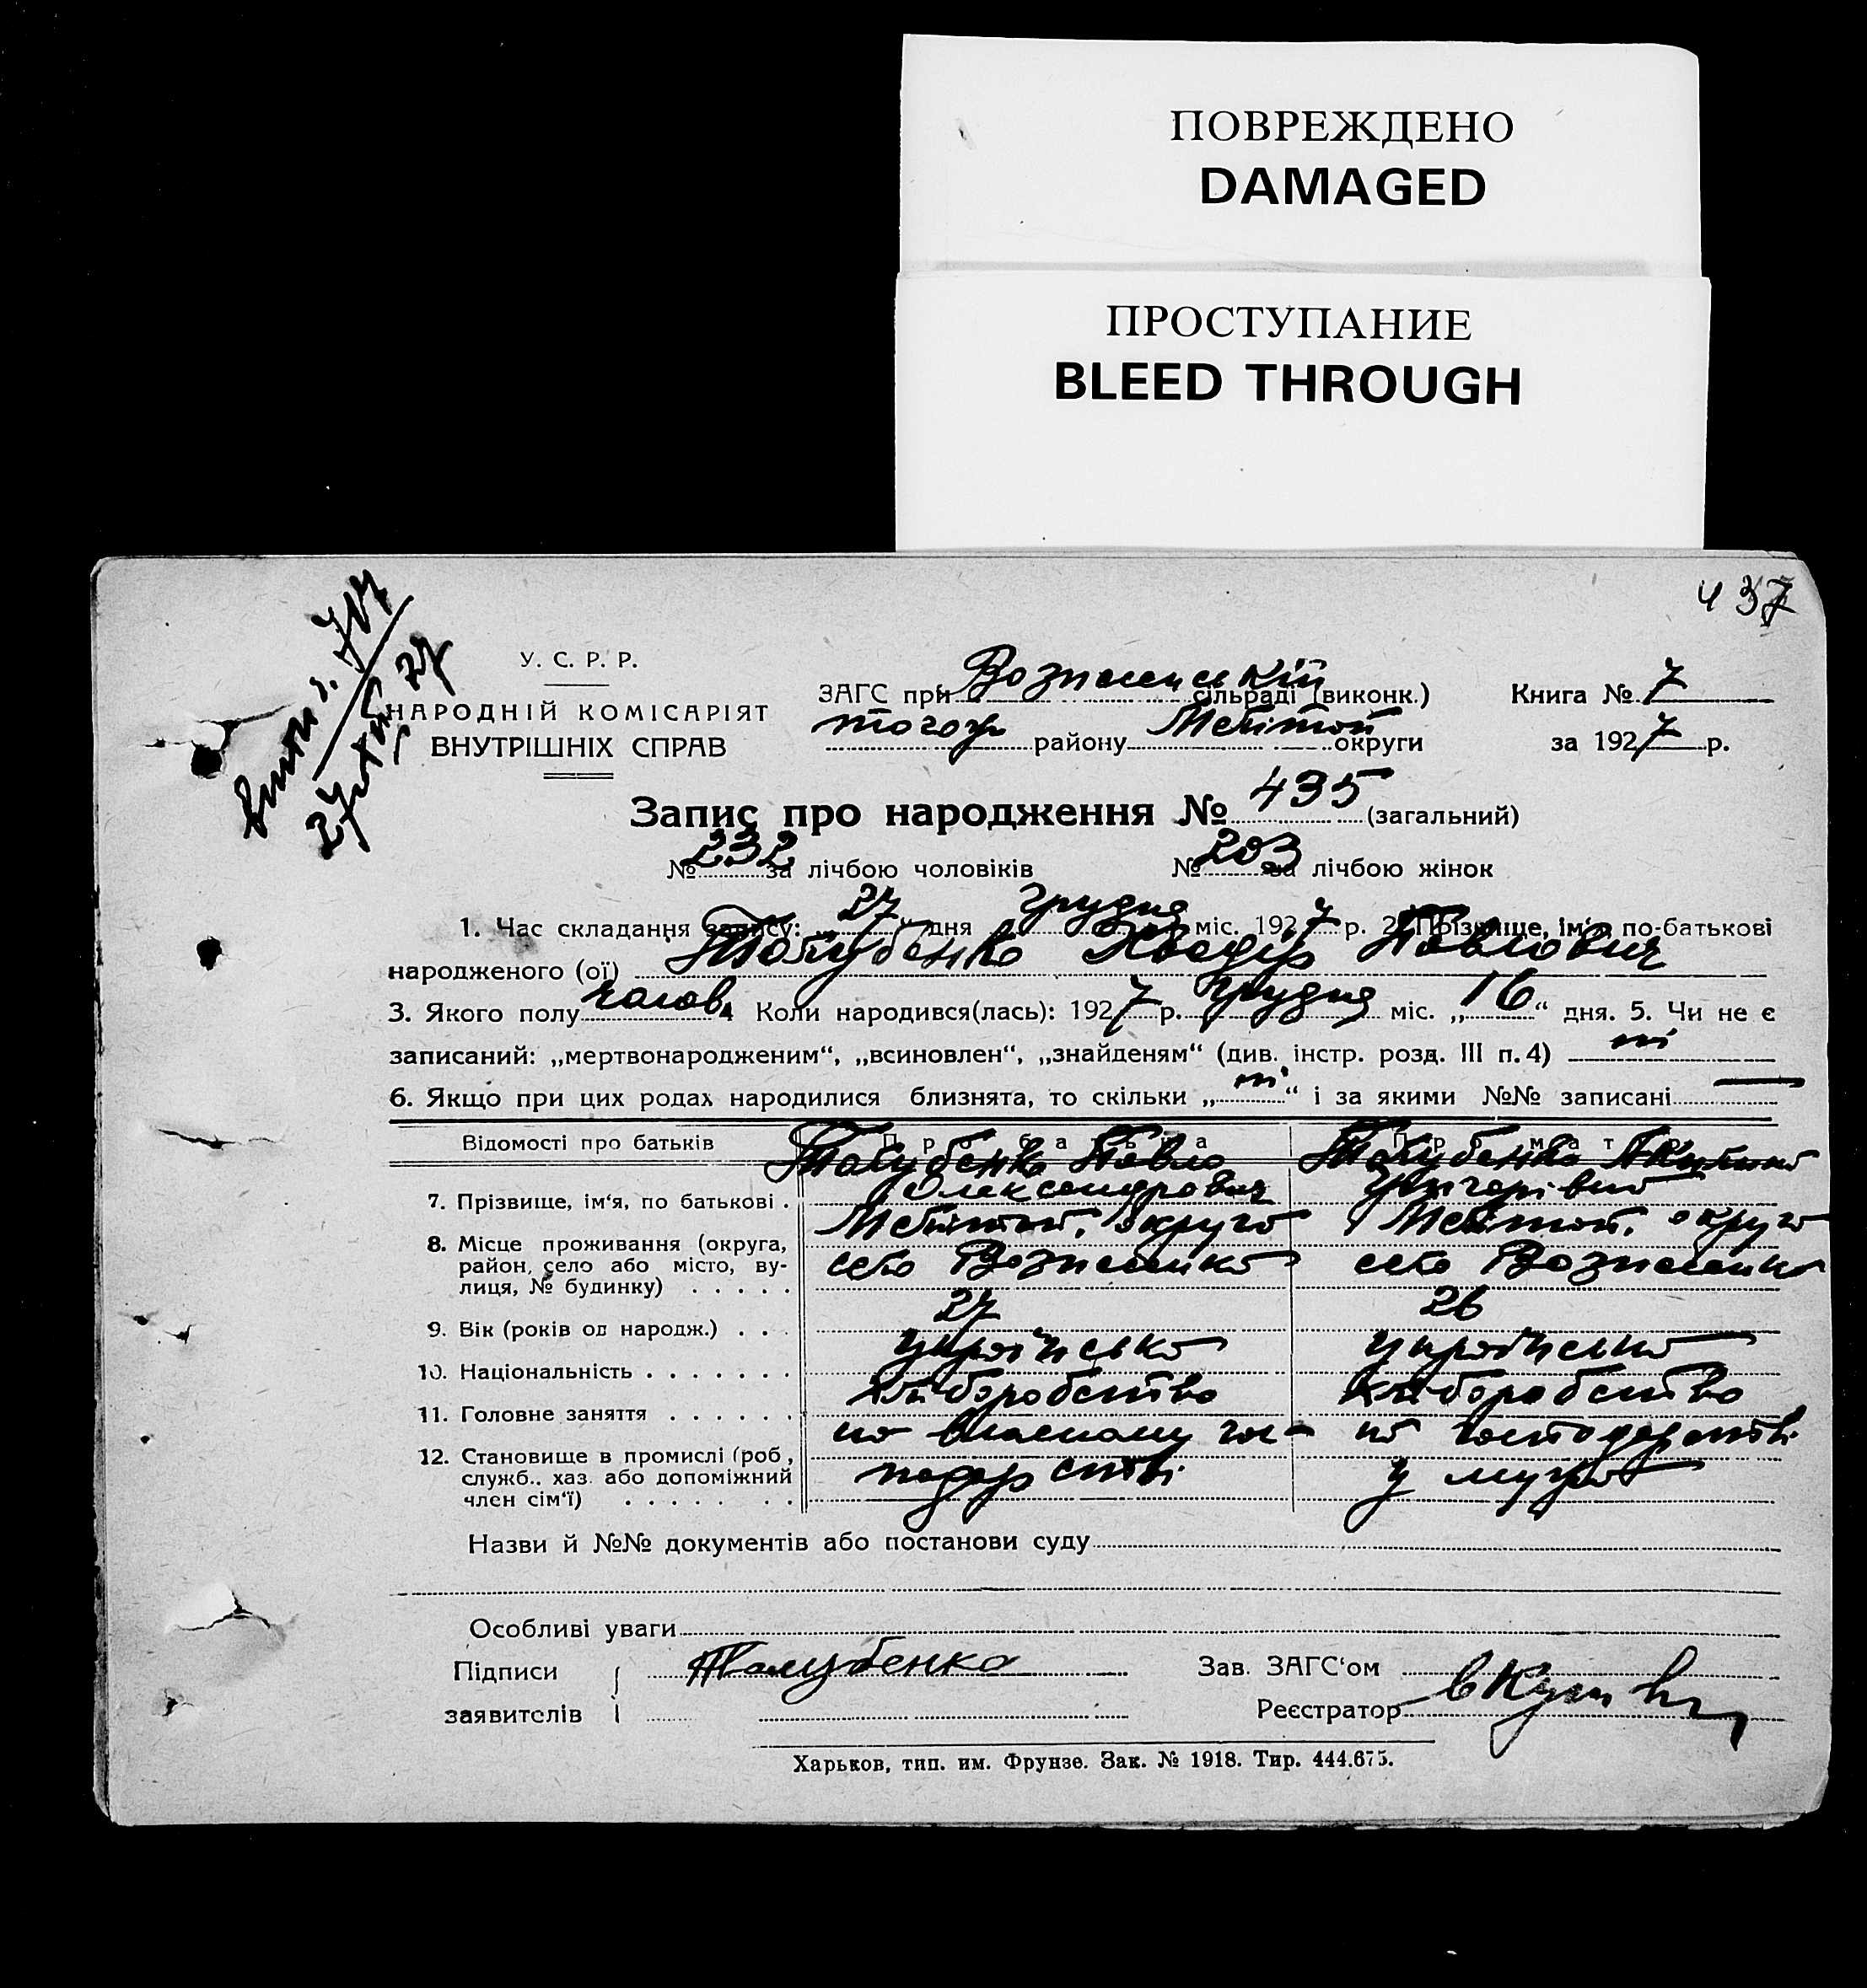 ПОВРЕЖДЕНО
DAMAGED
ПРОСТУПАНИЕ
BLEED THROUGH
437
У. С. Р. Р.
НАРОДНІЙ КОМІСАРІЯТ
ВНУТРІШНІХ СПРАВ
ЗАГС при Вознесенській сільраді (виконк.) Книга № 7
того ж району Мелітоп округи за 1927 р.
Запис про народження № 435 (загальний)
№ 232 за лічбою чоловіків № 203 за лічбою жінок
1. Час складання запису: „27“ дня грудня міс. 1927 р. 2. Прізвище, ім‘я, по-батькові
народженого (ої) Толубенко Павлович
3. Якого полу чолов. 4 Коли народився(лась): 1927 р. грудня міс. „16“ дня. 5. Чи не є
записаний: „мертвонародженим“, „всиновлен“, „знайденям“ (див. інстр. розд. III п. 4) ні
6. Якщо при цих родах народилися близнята, то скільки „ні“ і за якими №№ записані —
Відомості про батьків Про батька Про матір
7. Прізвище, ім‘я, по батькові . Толубенко Павло Олександрович Толубенко Григорівна
8. Місце проживання (округа, Мелітоп. округа Мелітоп. округа
район, село або місто, ву- село Вознесенка село Вознесенка
лиця, № будинку) . . . . .
9. Вік (років од народж.) . . . 27 26
10. Національність . . . . . . . українська українська
11. Головне заняття . . . . . . хліборобство хліборобство
12. Становище в промислі (роб., на власному гос- на господарстві
служб., хаз. або допоміжний подарстві у мужа
член сім‘ї) . . . . . . .
Назви й №№ документів або постанови суду
Особливі уваги
Підписи Толубенко Зав. ЗАГС‘ом
заявителів Реєстратор
Харьков, тип. им. Фрунзе. Зак. № 1918. Тир. 444.675.